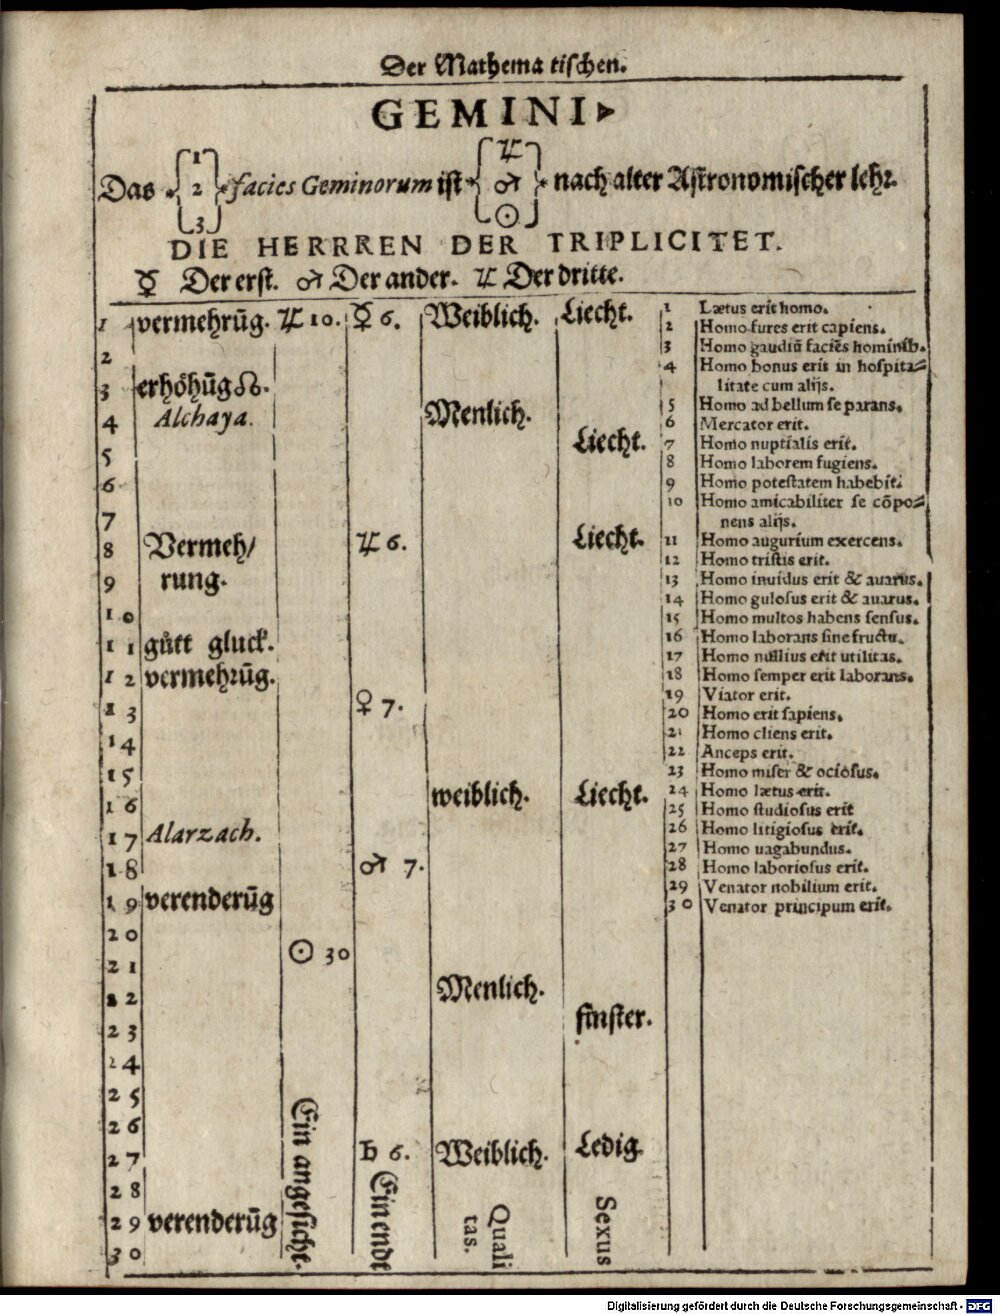 Der Mathema tischen.
GEMINI
♃
1
Das 2 facies Geminorum ist ♂ nach alter Astronomischer lehr.
3 ☉
DIE HERRREN DER TRIPLICITET.
☿ Der erst. ♂ Der ander. ♃ Der dritte.
1 vermehrũg. ♃ 10. ☿ 6. Weiblich. Liecht.
2
3 erhöhũg ☊.
4 Alchaya. Menlich.
5 Liecht.
6
7
8 Vermeh/ ♃ 6. Liecht.
9 rung.
10
11 gůtt gluck.
12 vermehrũg.
13 ♀ 7.
14
15
16 weiblich. Liecht.
17 Alarzach.
18 ♂ 7.
19 verenderũg
20
21 ☉ 30
22 Menlich.
23 finster.
24
25
26
27 ♄ 6. Weiblich. Ledig.
28
29 verenderũg
30
Ein angesicht.
Ein ende
Quali
tas.
Sexus
1 Lætus erit homo.
2 Homo fures erit capiens.
3 Homo gaudiũ faciẽs hominib.
4 Homo bonus erit in hospita=
litate cum alijs.
5 Homo ad bellum se parans.
6 Mercator erit.
7 Homo nuptialis erit.
8 Homo laborem fugiens.
9 Homo potestatem habebit.
10 Homo amicabiliter se cõpo=
nens alijs.
11 Homo augurium exercens.
12 Homo tristis erit.
13 Homo inuidus erit & auarus.
14 Homo gulosus erit & auarus.
15 Homo multos habens sensus.
16 Homo laborans sine fructu.
17 Homo nullius erit utilitas.
18 Homo semper erit laborans.
19 Viator erit.
20 Homo erit sapiens.
21 Homo cliens erit.
22 Anceps erit.
23 Homo miser & ociosus.
24 Homo lætus erit.
25 Homo studiosus erit
26 Homo litigiosus erit.
27 Homo uagabundus.
28 Homo laboriosus erit.
29 Venator nobilium erit.
30 Venator principum erit.
Digitalisierung gefördert durch die Deutsche Forschungsgemeinschaft - DFG